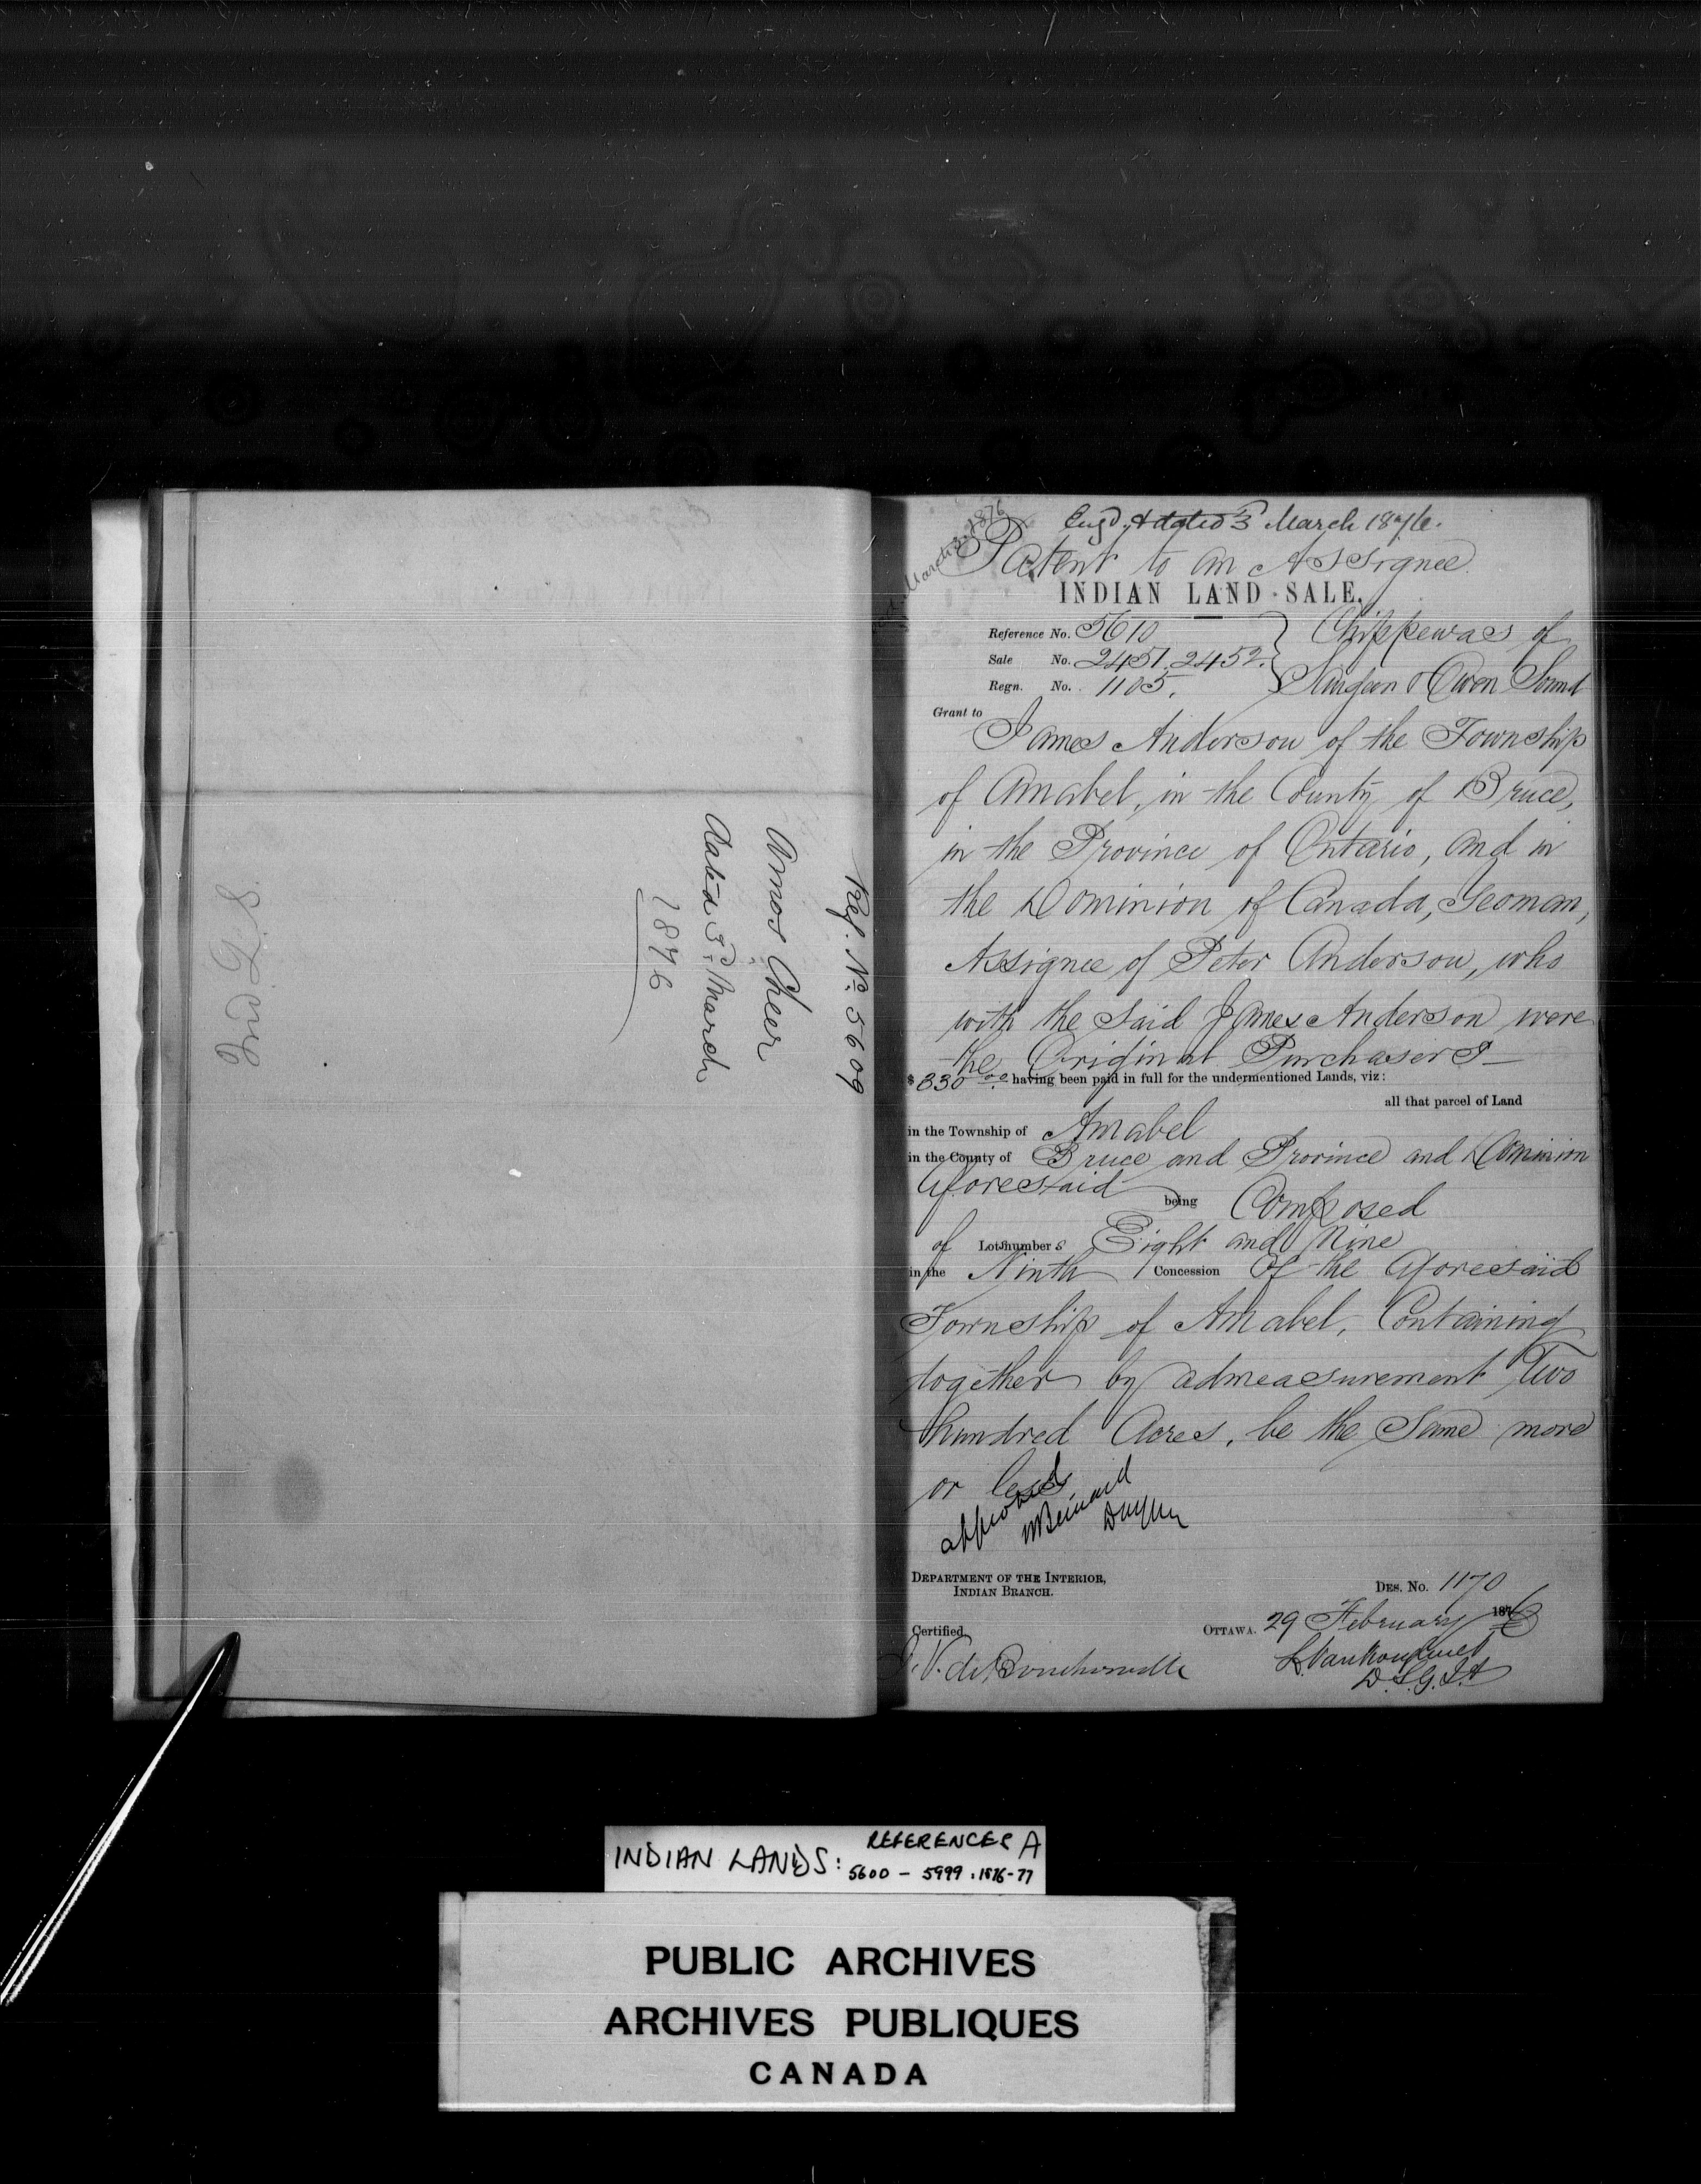 Ref. No. 5609
Amos Cheer
Dated 3d March
1876
Ind. L. S.
March 3. 1876
Eng'd & dated 3 March 1876.
Patent to an Assignee
INDIAN LAND SALE.
Reference No. 5610
Sale No. 2451. 2452.
Regn. No. 1105.
Chippewas of
Saugeen & Owen Sound
Grant to
James Anderson of the Township
of Amabel, in the County of Bruce,
in the Province of Ontario, and in
the Dominion of Canada, Yeoman,
Assignee of Peter Anderson, who
with the said James Anderson were
the Original Purchasers
$330.00 having been paid in full for the undermentioned Lands, viz:
all that parcel of Land
in the Township of Amabel
in the County of Bruce and Province and Dominion
aforesaid being Composed
of Lots numbers Eight and Nine
in the Ninth Concession of the aforesaid
Township of Amabel, Containing
together by admeasurement Two
hundred Acres, be the same more
or less
approved
Bernard
DEPARTMENT OF THE INTERIOR,
INDIAN BRANCH.
DES. No. 1170
OTTAWA. 29 February 1876
Certified,
J. V. de Boucherville
L. Vankoughnet
D.S.G.I.A
INDIAN LANDS: REFERENCES A
5600 - 5999. 1876-77
PUBLIC ARCHIVES
ARCHIVES PUBLIQUES
CANADA